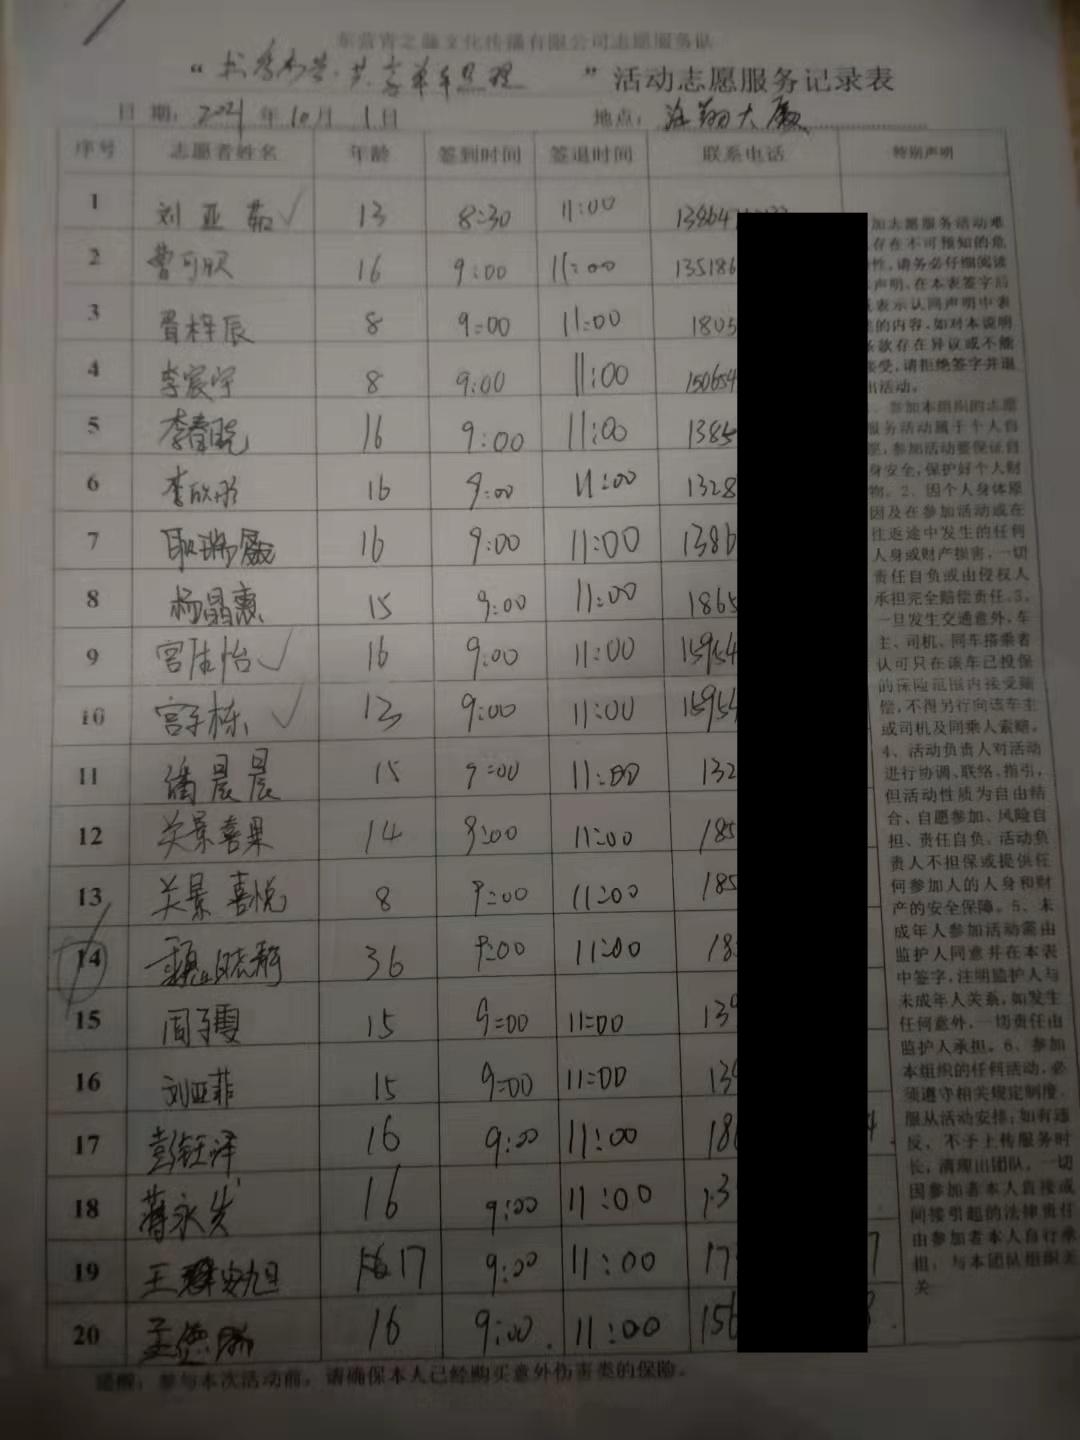 东营青之藤文化传播有限公司志愿服务队
“书香 共享单车整理”活动志愿服务记录表
日 期：2021年10月1日 地点：汇翔大厦
序号 志愿者姓名 年龄 签到时间 签退时间 联系电话 特别声明
1 刘亚茹✓ 13 8:30 11:00 13864
2 曹可欣 16 9:00 11:00 135186
3 胥梓辰 8 9:00 11:00 1805
4 李宸宇 8 9:00 11:00 150654
5 李春晓 16 9:00 11:00 1385
6 李欣彤 16 9:00 11:00 1328
7 耿瑞 16 9:00 11:00 1386
8 杨晶惠 15 9:00 11:00 1865
9 宫佳怡✓ 16 9:00 11:00 15954
10 宫子栋✓ 13 9:00 11:00 15954
11 潘晨晨 15 9:00 11:00 132
12 关景喜果 14 9:00 11:00 185
13 关景喜悦 8 9:00 11:00 185
14 36 9:00 11:00 18
15 周子雯 15 9:00 11:00 139
16 刘亚菲 15 9:00 11:00 139
17 彭钰泽 16 9:00 11:00 18 4
18 蒋永 16 9:00 11:00 13
19 王 旭 17 9:00 11:00 17 7
20 孟德 16 9:00 11:00 156
加志愿服务活动难
存在不可预知的危
性，请务必仔细阅读
声明，在本表签字后
表示认同声明中表
的内容，如对本说明
条款存在异议或不能
接受，请拒绝签字并退
出活动。
、参加本组织的志愿
服务活动属于个人自
愿，参加活动要保证自
身安全，保护好个人财
物。2、因个人身体原
因及在参加活动或在
往返途中发生的任何
人身或财产损害，一切
责任自负或由侵权人
承担完全赔偿责任。3、
一旦发生交通意外，车
主、司机、同车搭乘者
认可只在该车已投保
的保险范围内接受赔
偿，不得另行向该车主
或司机及同乘人索赔。
4、活动负责人对活动
进行协调、联络、指引，
但活动性质为自由结
合、自愿参加、风险自
担、责任自负、活动负
责人不担保或提供任
何参加人的人身和财
产的安全保障。5、未
成年人参加活动需由
监护人同意并在本表
中签字，注明监护人与
未成年人关系，如发生
任何意外，一切责任由
监护人承担。6、参加
本组织的任何活动，必
须遵守相关规定制度，
服从活动安排；如有违
反，不予上传服务时
长，清理出团队。一切
因参加者本人直接或
间接引起的法律责任
由参加者本人自行承
担；与本团队组织无
关
提醒：参与本次活动前，请确保本人已经购买意外伤害类的保险。